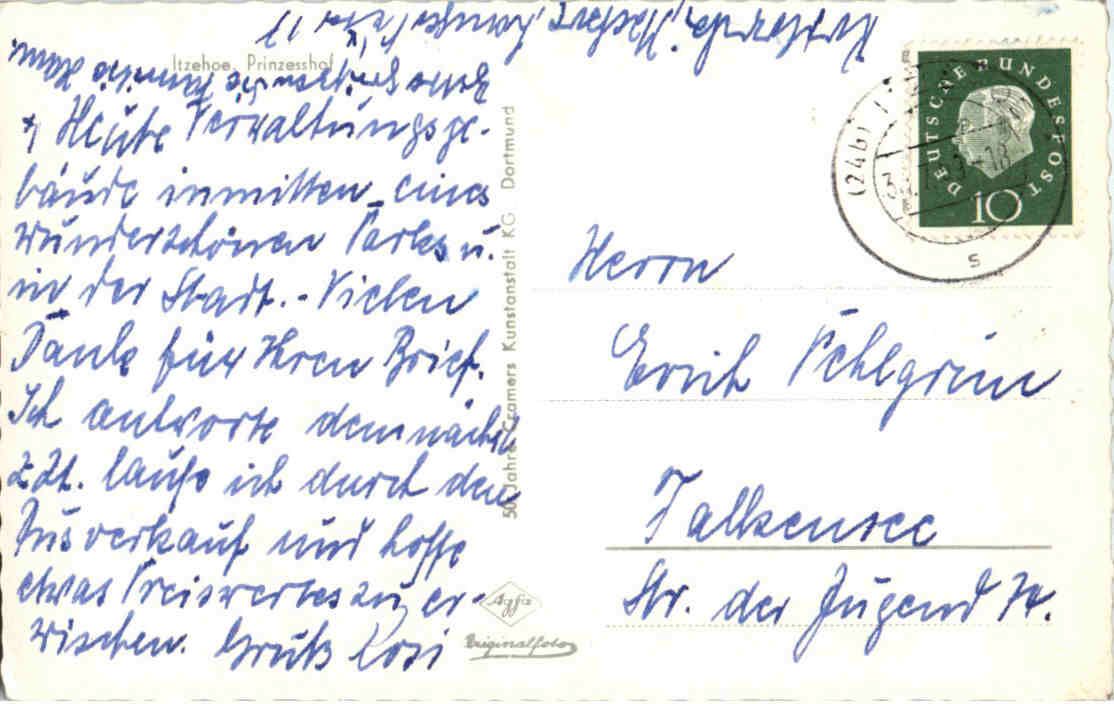 Itzehoe, Prinzesshof
*) Heute Verwaltungsge-
bäude inmitten eines
wunderschönen Parks u.
in der Stadt. - Vielen
Dank für Ihren Brief.
Ich antworte demnächst
z. Zt. laufe ich durch den
Ausverkauf und hoffe
etwas Preiswertes zu er-
wischen. Gruß Rosi
50 Jahre Cramers Kunstanstalt KG Dortmund
Agfa
Originalfoto
DEUTSCHE BUNDESPOST
10
(24b)
Herrn
Erich Fehlgrim
Falkensee
Str. der Jugend 74.